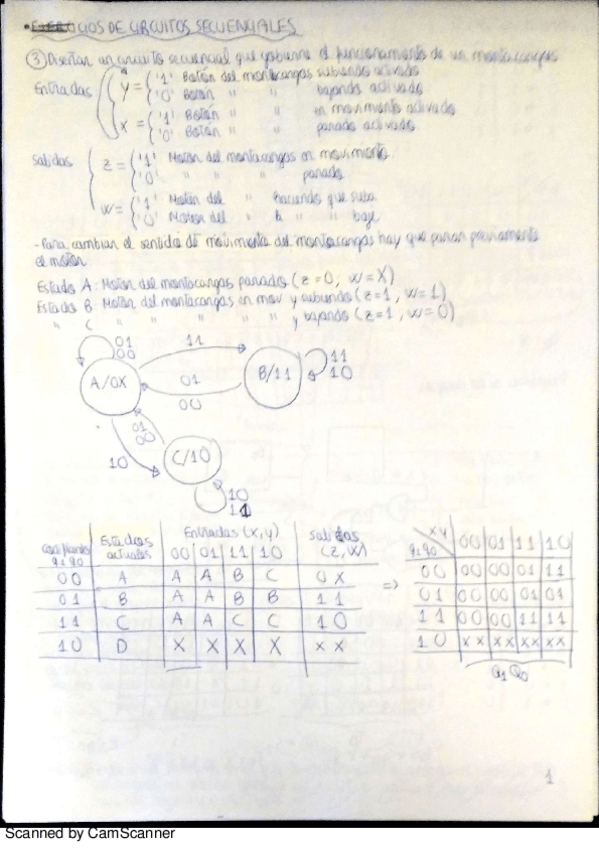 • EJERCICIOS DE CIRCUITOS SECUENCIALES
③ Diseñar un circuito secuencial que gobierne el funcionamiento de un montacargas
Entradas
y = { '1' Botón del montacargas subiendo activado
'0' Botón " " bajando activado
x = { '1' Botón " " en movimiento activado
'0' Botón " " parado activado
Salidas
z = { '1' Motor del montacargas en movimiento.
'0' " " " parado
w = { '1' Motor del " haciendo que suba
'0' Motor del " " " baje
- Para cambiar el sentido de movimiento del montacargas hay que parar previamente
el motor
Estado A: Motor del montacargas parado (z=0, w=X)
Estado B: Motor del montacargas en mov y subiendo (z=1, w=1)
" C " " " " " y bajando (z=1, w=0)
01
00
11
A/0X
B/11
11
10
01
00
01
00
10
C/10
10
11
Estados actuales
Entradas (x,y)
Salidas (z,w)
q1 q0
00 01 11 10
00 A A A B C 0X
01 B A A B B 11
11 C A A C C 10
10 D X X X X XX
=>
xy
q1q0 00 01 11 10
00 00 00 01 11
01 00 00 01 01
11 00 00 11 11
10 xx xx xx xx
Q1 Q0
1
Scanned by CamScanner